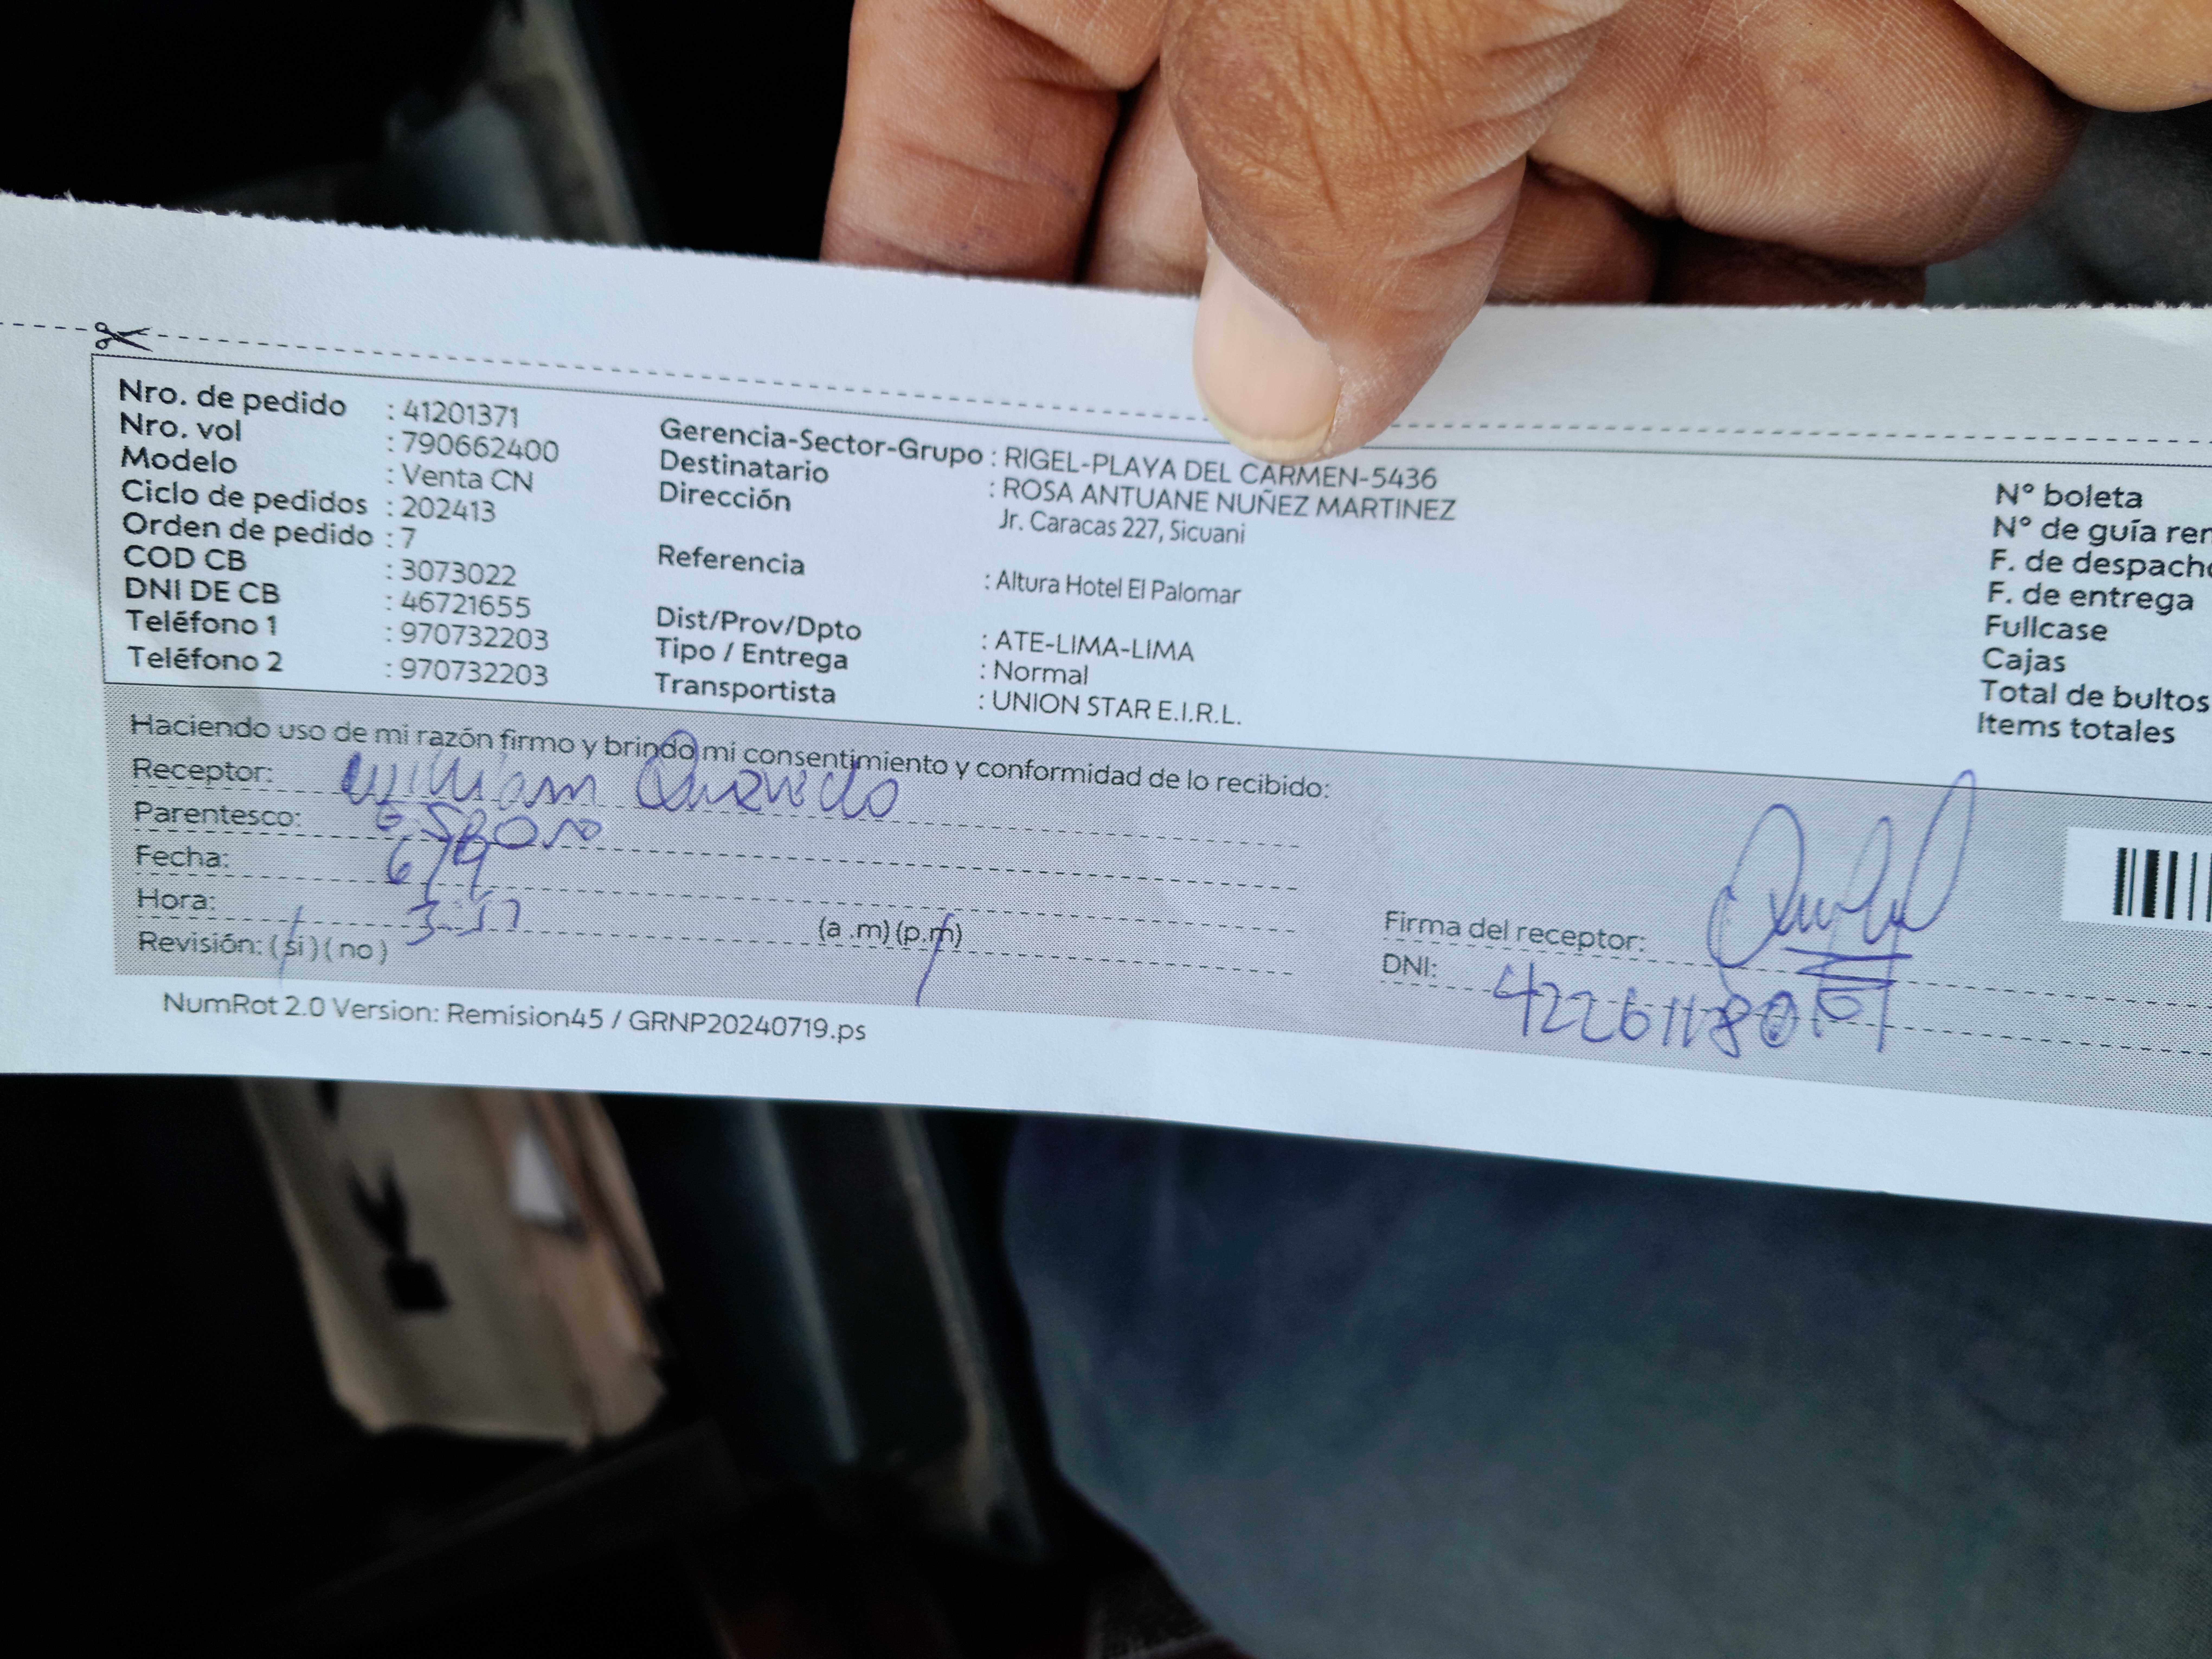 Nro. de pedido : 41201371
Nro. vol : 790662400
Modelo : Venta CN
Ciclo de pedidos : 202413
Orden de pedido : 7
COD CB : 3073022
DNI DE CB : 46721655
Teléfono 1 : 970732203
Teléfono 2 : 970732203
Gerencia-Sector-Grupo : RIGEL-PLAYA DEL CARMEN-5436
Destinatario : ROSA ANTUANE NUÑEZ MARTINEZ
Dirección Jr. Caracas 227, Sicuani
Referencia : Altura Hotel El Palomar
Dist/Prov/Dpto : ATE-LIMA-LIMA
Tipo / Entrega : Normal
Transportista : UNION STAR E.I.R.L.
N° boleta
N° de guía rer
F. de despacho
F. de entrega
Fullcase
Cajas
Total de bultos
Items totales
Haciendo uso de mi razón firmo y brindo mi consentimiento y conformidad de lo recibido:
Receptor: William
Parentesco: Esposo
Fecha: 6/9
Hora: 3:57 (a .m) (p.m)
Revisión: (si) (no)
Firma del receptor:
DNI:
NumRot 2.0 Version: Remision45 / GRNP20240719.ps